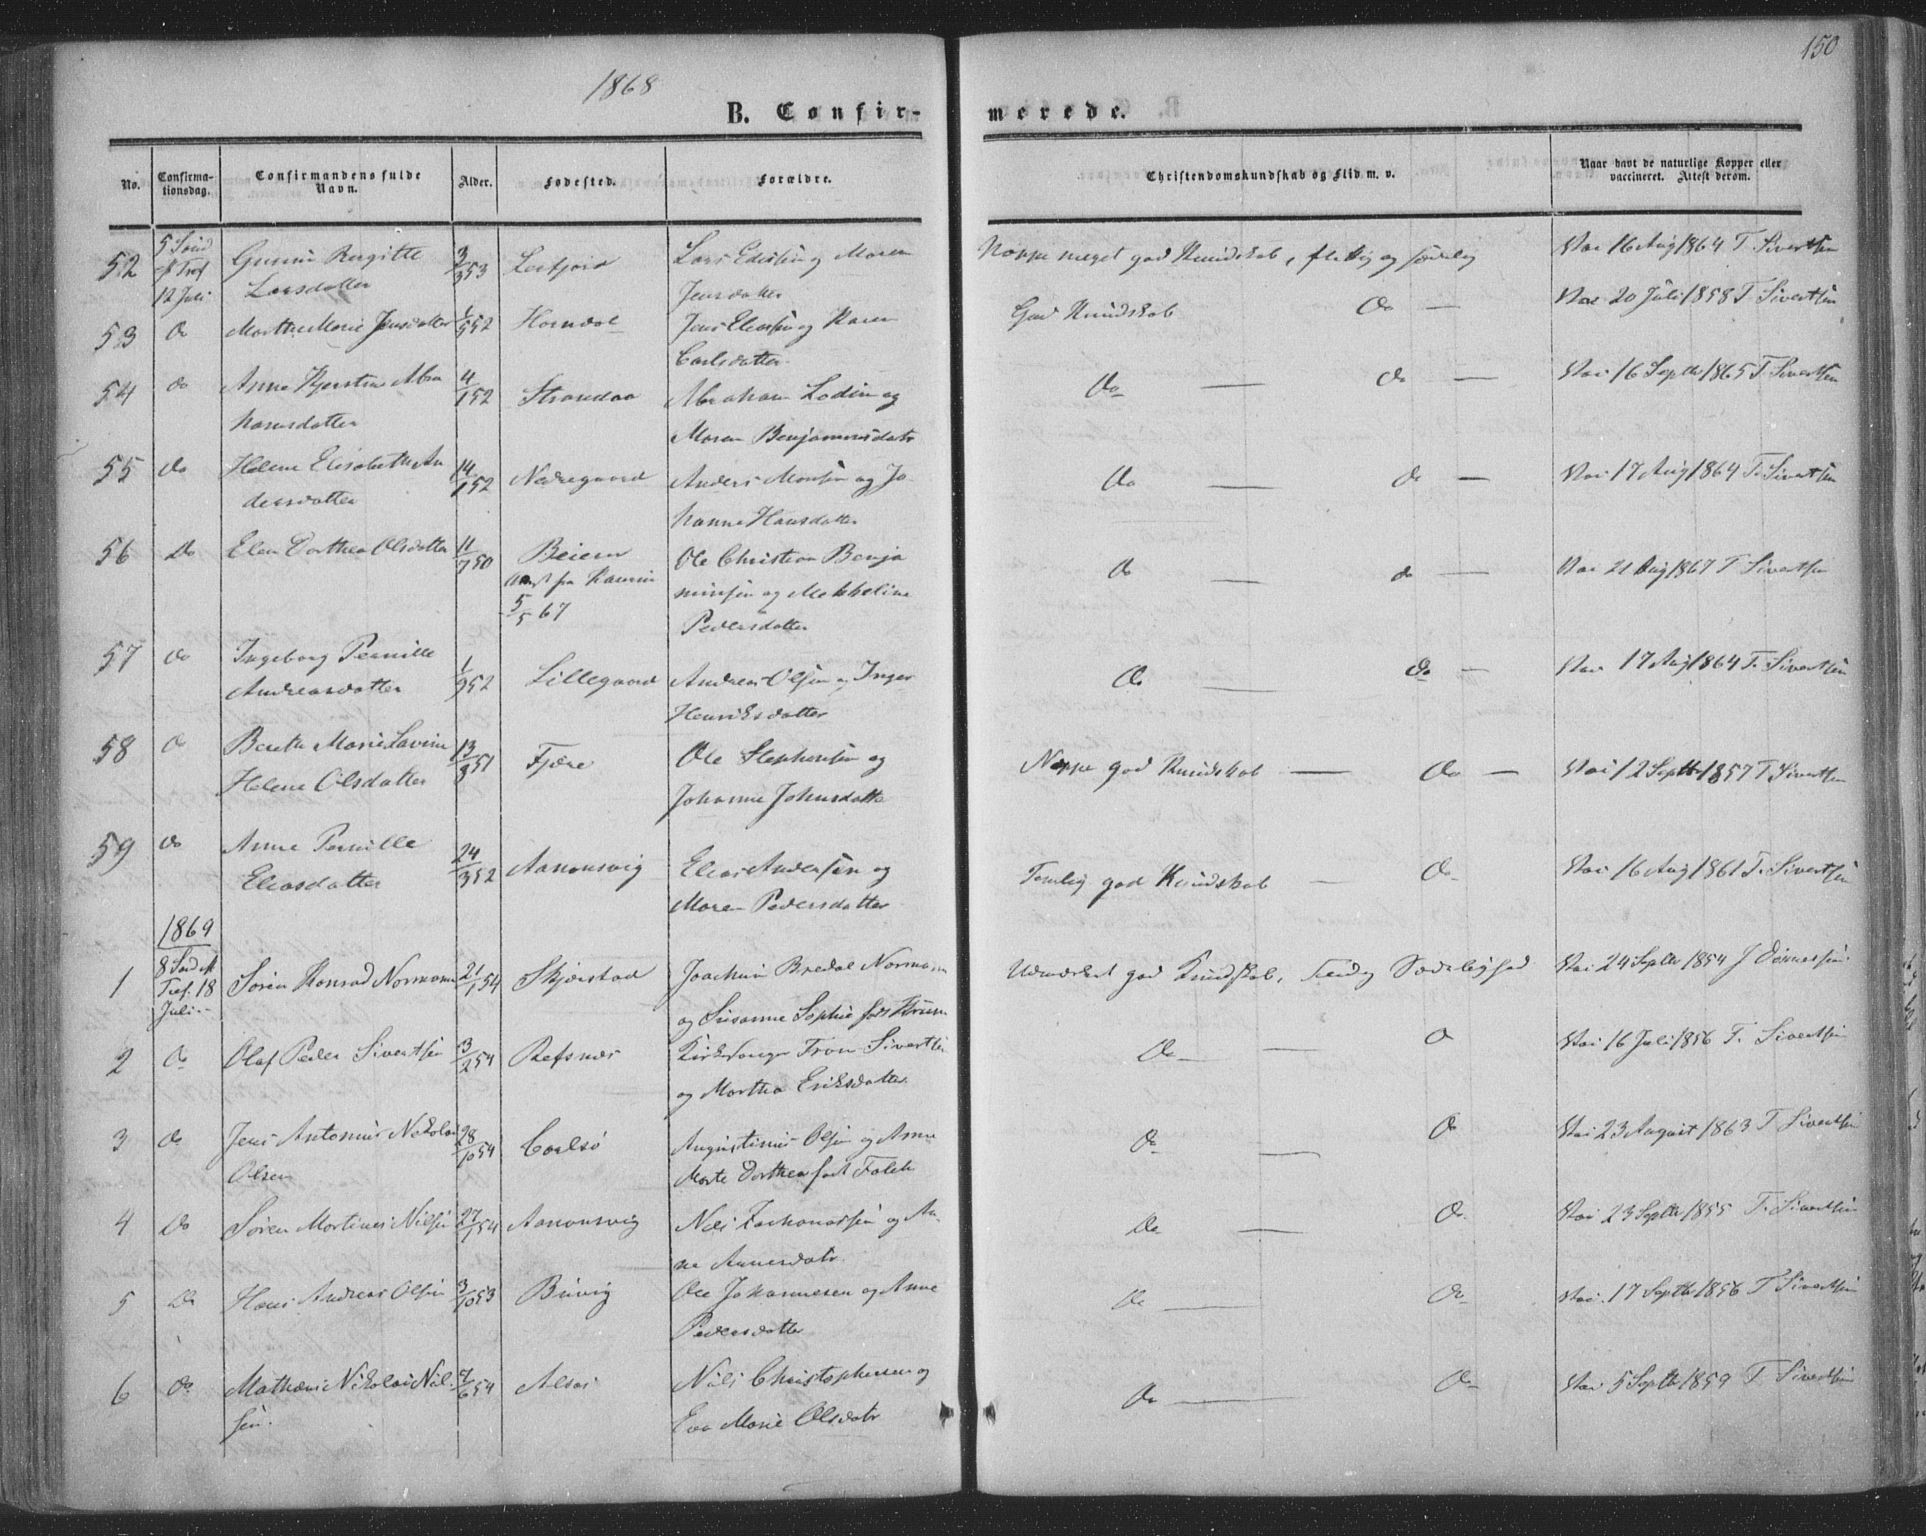 150
1868
B. Confir-
merede.
No.
Confirma-
tionsdag.
Confirmandens fulde
Navn.
Alder.
Fødested.
Forældre.
Christendomskundskab og Flid m. v.
Naar havt de naturlige Kopper eller
vaccineret. Attest derom.
52
5 Sønd
ef Tref
12 Juli
Gunni Birgitte
Larsdatter
3/3 53
Leifjord
Maren
Jensdatter
meget god Kundskab, flittig og sædelig
Vac 16 Aug 1864 T. Sivertsen
53
Do
Marthe Marie Jensdatter
1/5 52
Horndal
Jens Eliassen og Karen
Carlsdatter
God Kundskab
Do
Vac 20 Juli 1858 T Sivertsen
54
do
Anne Kjerstine Abra
hamsdatter
4/1 52
Strandaa
Abraham Lodin og
Maren Benjaminsdatr
Do
do
Vac 16 Septb 1865 T Sivertsen
55
do
Helene Elisabeth An
dersdatter
14/1 52
Nedregaard
Anders Monsen og Jo
hanna Hansdatter
Do
do
Vac 17 Aug 1864 T. Sivertsen
56
Do
Elen Dorthea Olsdatter
11/7 50
Beiern
5/5 67
Ole Christian Benja
minsen og Mekkeline
Pedersdatter
Do
do
Vac 21 Aug 1867 T Sivertsen
57
do
Ingeborg Pernille
Andreasdatter
1/9 52
Lillegaard
Andreas Olsen og Inger
Henriksdatter
Do
do
Vac 17 Aug 1864 T. Sivertsen
58
Do
Berethe Marie Lavine
Helene Olsdatter
13/8 51
Fjære
Ole Stephensen og
Johanna Johnsdatter
god Kundskab
Do
Vac 12 Septb 1857 T Sivertsen
59
do
Anne Pernille
Eliasdatter
24/3 52
Aanonsvig
Elias Andersen og
Maren Pedersdatter
Temlig god Kundskab
Do
Vac 16 Aug 1861 T. Sivertsen
1869
1
8 Sønd ef
Tref. 18
Juli
Søren Konrad Normann
21/1 54
Skjerstad
Joachim Bredal Normann
og Susanne Sophie født
Udmærket god Kundskab, Flid og Sædelighed
Vac 24 Septb 1854
2
Do
Olaf Peder Sivertsen
3/2 54
Refsnæs
Kirkesanger Tron Sivertsen
og Martha Eriksdatter
Do
Do
Vac 16 Juli 1856 T. Sivertsen
3
Do
Jens Antonius Nikolai
Olsen
28/10 54
Carlsø
Augustinus Olsen og Anne
Marte Dorthea født Falch
Do
Do
Vac 23 August 1863 T Sivertsen
4
Do
Søren Martinus Nielsen
27/1 54
Aanonsvig
Niels Zachariassen og An-
ne
Do
Do
Vac 23 Septb 1855 T. Sivertsen
5
Do
Hans Andreas Olsen
3/10 53
Buvig
Ole Johannesen og Anne
Pedersdatter
Do
Do
Vac. 17 Septb 1856 T Sivertsen
6
Do
Mathæus Nikolai Niel-
sen.
7/6 54
Alsos
Niels Christophersen og
Eva Marie Olsdatr
Do
Do
Vac 5 Septb 1859 T Sivertsen